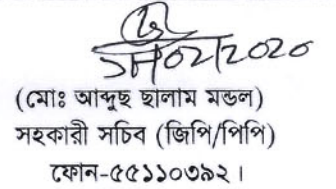 ০২/২০২০
(মোঃ আব্দুছ ছালাম মন্ডল)
সহকারী সচিব (জিপি/পিপি)
ফোন-৫৫১১০৩৯২।